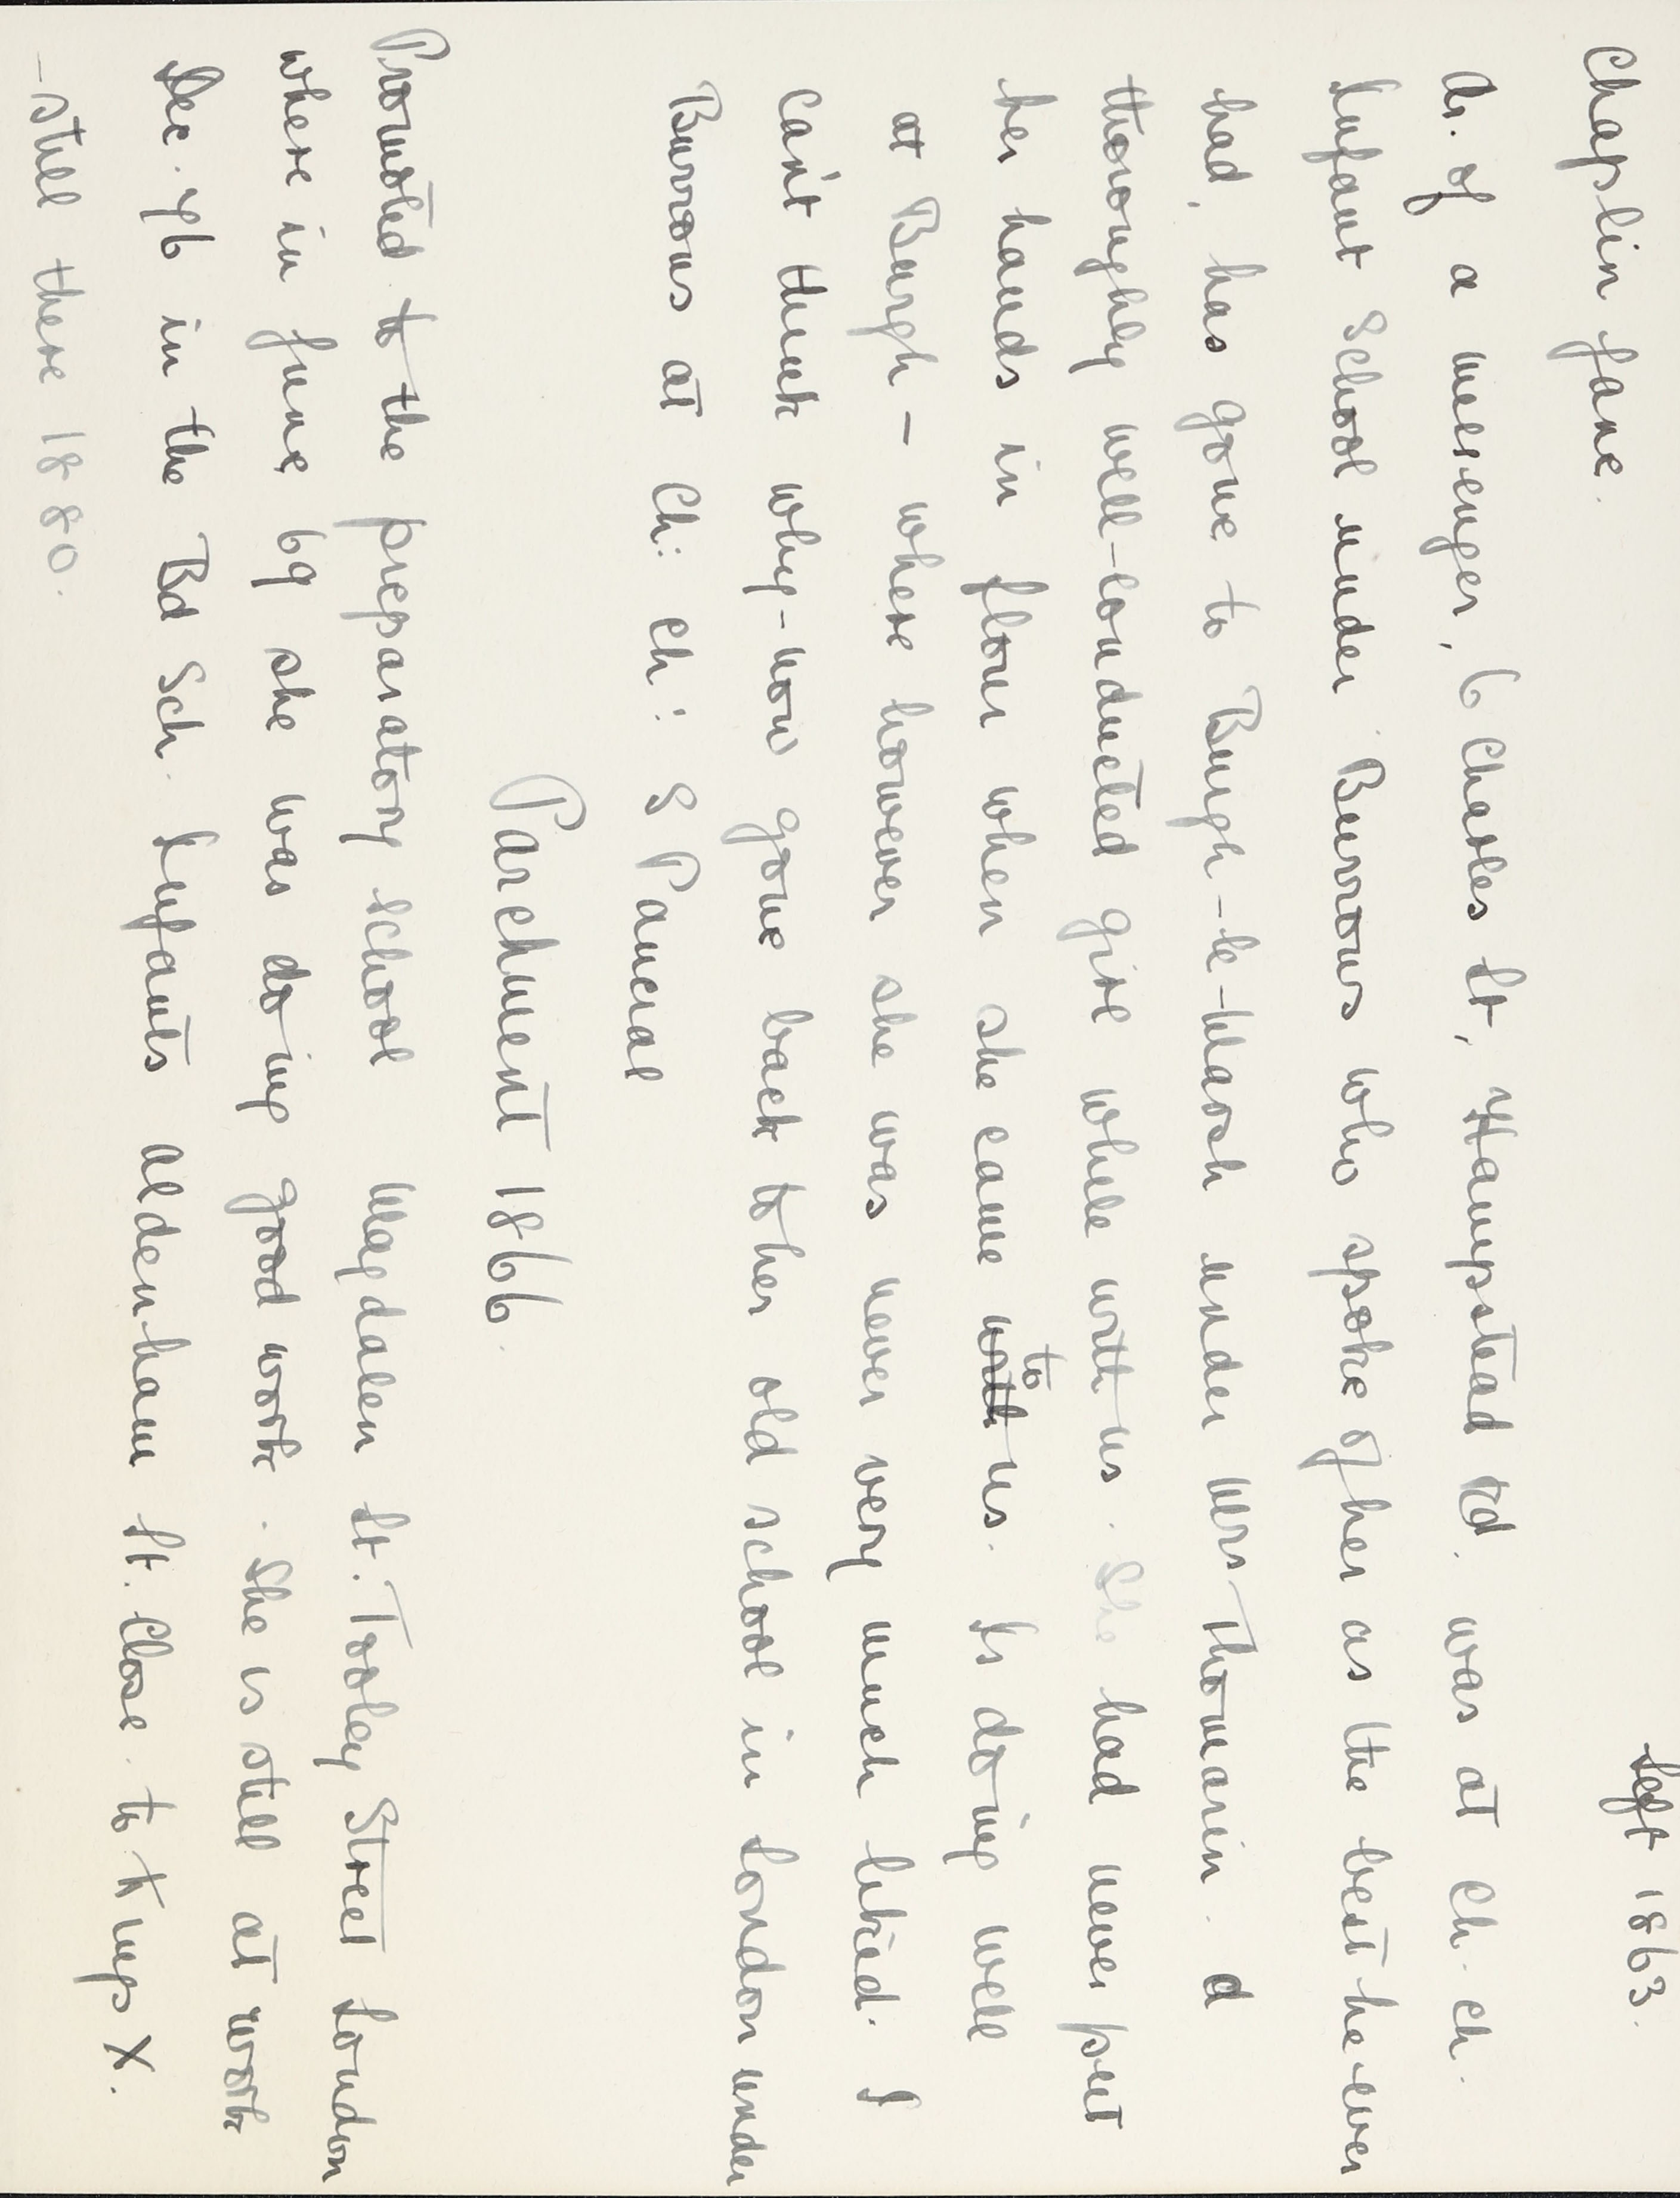 left 1863.
Chaplin Jane.
dr. of a messenger, 6 Charles St, Hampstead Rd. was at Ch. Ch.
Infant School under Burrows who spoke of her as the best he ever
had, has gone to Burgh-le-Marsh under Mrs Thomasin. d
thoroughly well-conducted girl while with us. She had never put
her hands in flour when she came with to us. Is doing well
at Burgh - where however she was never very much liked. I
can't think why - now gone back to her old school in London under
Burrows at Ch: Ch: S Pancras
Parchment 1866.
Promoted to the preparatory school Magdalen St: Tooley Street London
where in June 69 she was doing good work. She is still at work
Dec. 76 in the Bd Sch. Infants Aldenham St. Close to Kings X.
- still there 1880.